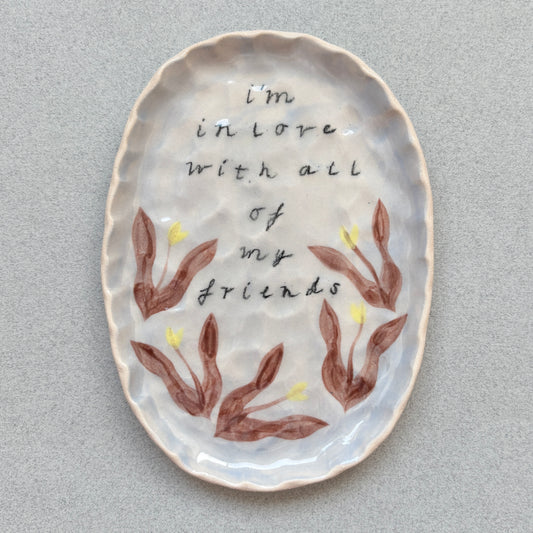 i'm
in love
with all
of
my
friends